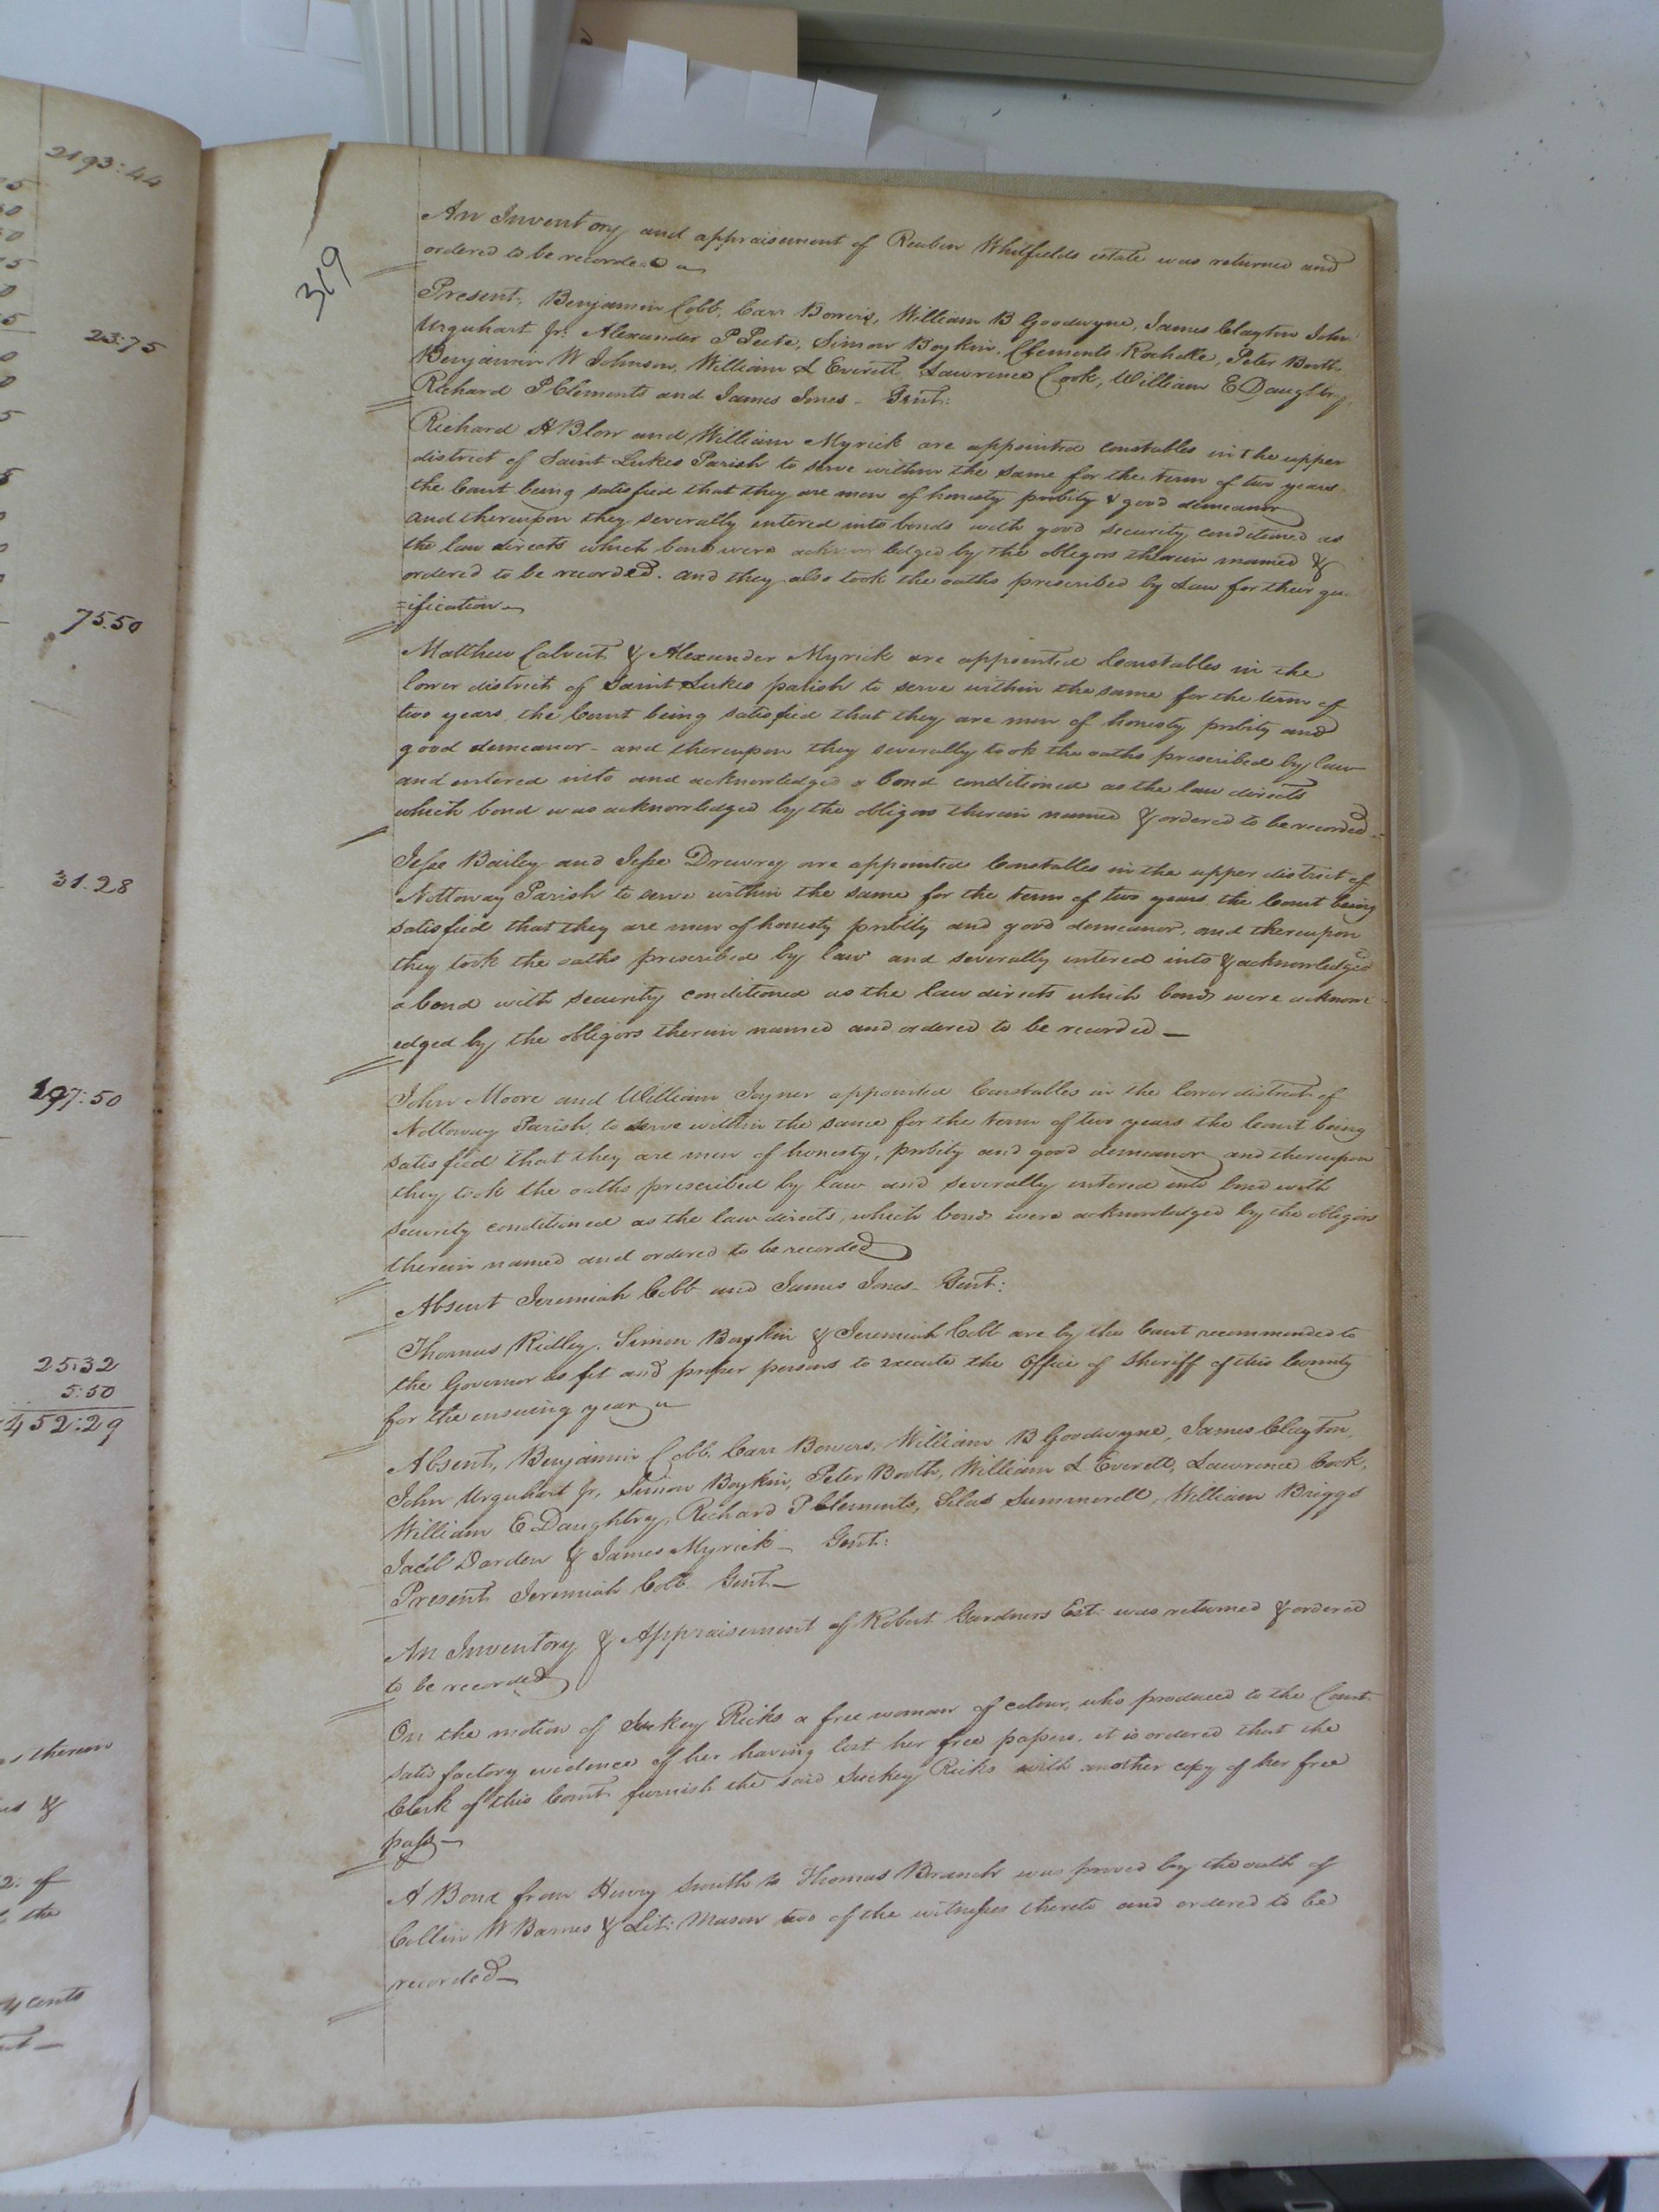 2193:44
23:75
75.50
31.28
197:50
25:32
5:50
452:29
s therein
&
2. of
the
4 cents
319
An Inventory and appraisement of Reuben Whitfields estate was returned and
ordered to be recorded
Present, Benjamin Cobb, Carr Bowers, William B Goodwyne, James Clayton John
Urquhart Jr. Alexander P Peete, Simon Boykin, Clements Rochelle, Peter Booth
Benjamin W Johnson, William L Everett, Lawrence Cook, William E Daughtrey,
Richard P Clements and James Jones - Gent:
Richard H Blow and William Myrick are appointed constables in the upper
district of Saint Lukes Parish to serve within the same for the term of two years
the Court being satisfied that they are men of honesty probity & good demeanor
and thereupon they severally entered into bonds with good security conditioned as
the law directs which bond were acknowledged by the obligors therein named &
ordered to be recorded. and they also took the oaths prescribed by Law for their qu
=ification
Matthew Calvert & Alexander Myrick are appointed Constables in the
lower district of Saint Lukes parish to serve within the same for the term of
two years, the Court being satisfied that they are men of honesty probity and
good demeanor - and thereupon they severally took the oaths prescribed by law
and entered into and acknowledged a bond conditioned as the law directs
which bond was acknowledged by the obligors therein named & ordered to be recorded -
Jesse Bailey and Jesse Drewrey are appointed Constables in the upper district of
Nottoway Parish to serve within the same for the term of two years the Court being
satisfied that they are men of honesty probity and good demeanor, and thereupon
they took the oaths prescribed by law and severally entered into & acknowledged
a bond with security conditioned as the law directs which bonds were acknowl
edged by the obligors therein named and ordered to be recorded —
John Moore and William Joyner appointed Constables in the lower district of
Nottoway Parish, to serve within the same for the term of two years the Court being
satisfied that they are men of honesty, probity and good demeanor and thereupon
they took the oaths prescribed by law and severally entered into bond with
security conditioned as the law directs, which bonds were acknowledged by the obligors
therein named and ordered to be recorded
Absent Jeremiah Cobb and James Jones - Gent:
Thomas Ridley, Simon Boykin & Jeremiah Cobb are by the Court recommended to
the Governor as fit and proper persons to execute the Office of Sheriff of this County
for the ensuing year
Absent, Benjamin Cobb, Carr Bowers, William B Goodwyne, James Clayton,
John Urquhart Jr, Simon Boykin, Peter Booth, William L Everett, Lawrence Cook,
William E Daughtry, Richard P Clements, Silas Summerell, William Briggs
Jacob Darden & James Myrick - Gent:
Present Jeremiah Cobb Gent —
An Inventory & Appraisement of Robert Gardners Est: was returned & ordered
to be recorded
On the motion of Suckey Ricks a free woman of colour, who produced to the Court
satisfactory evidence of her having lost her free papers, it is ordered that the
Clerk of this Court furnish the said Suckey Ricks with another copy of her free
pass —
A Bond from Henry Smith to Thomas Branch was proved by the oath of
Collin W Barnes & Lit: Mason two of the witnesses thereto and ordered to be
recorded —